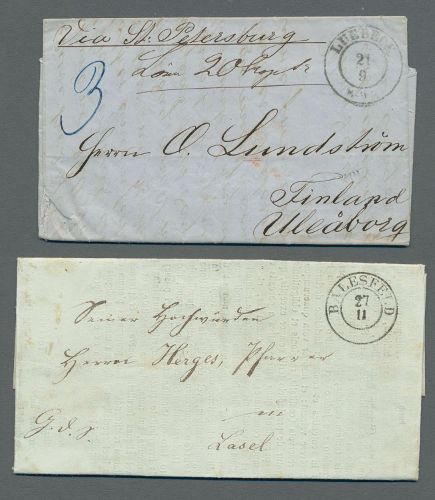 Via St. Petersburg
LUEBECK
21
9
20 Kop
3
Herrn O. Lundström
Finland
Uleåborg
BALESFELD
27
11
Seiner Hochwürden
Herrn Herges, Pfarrer
in
Lasel
G. d. S.